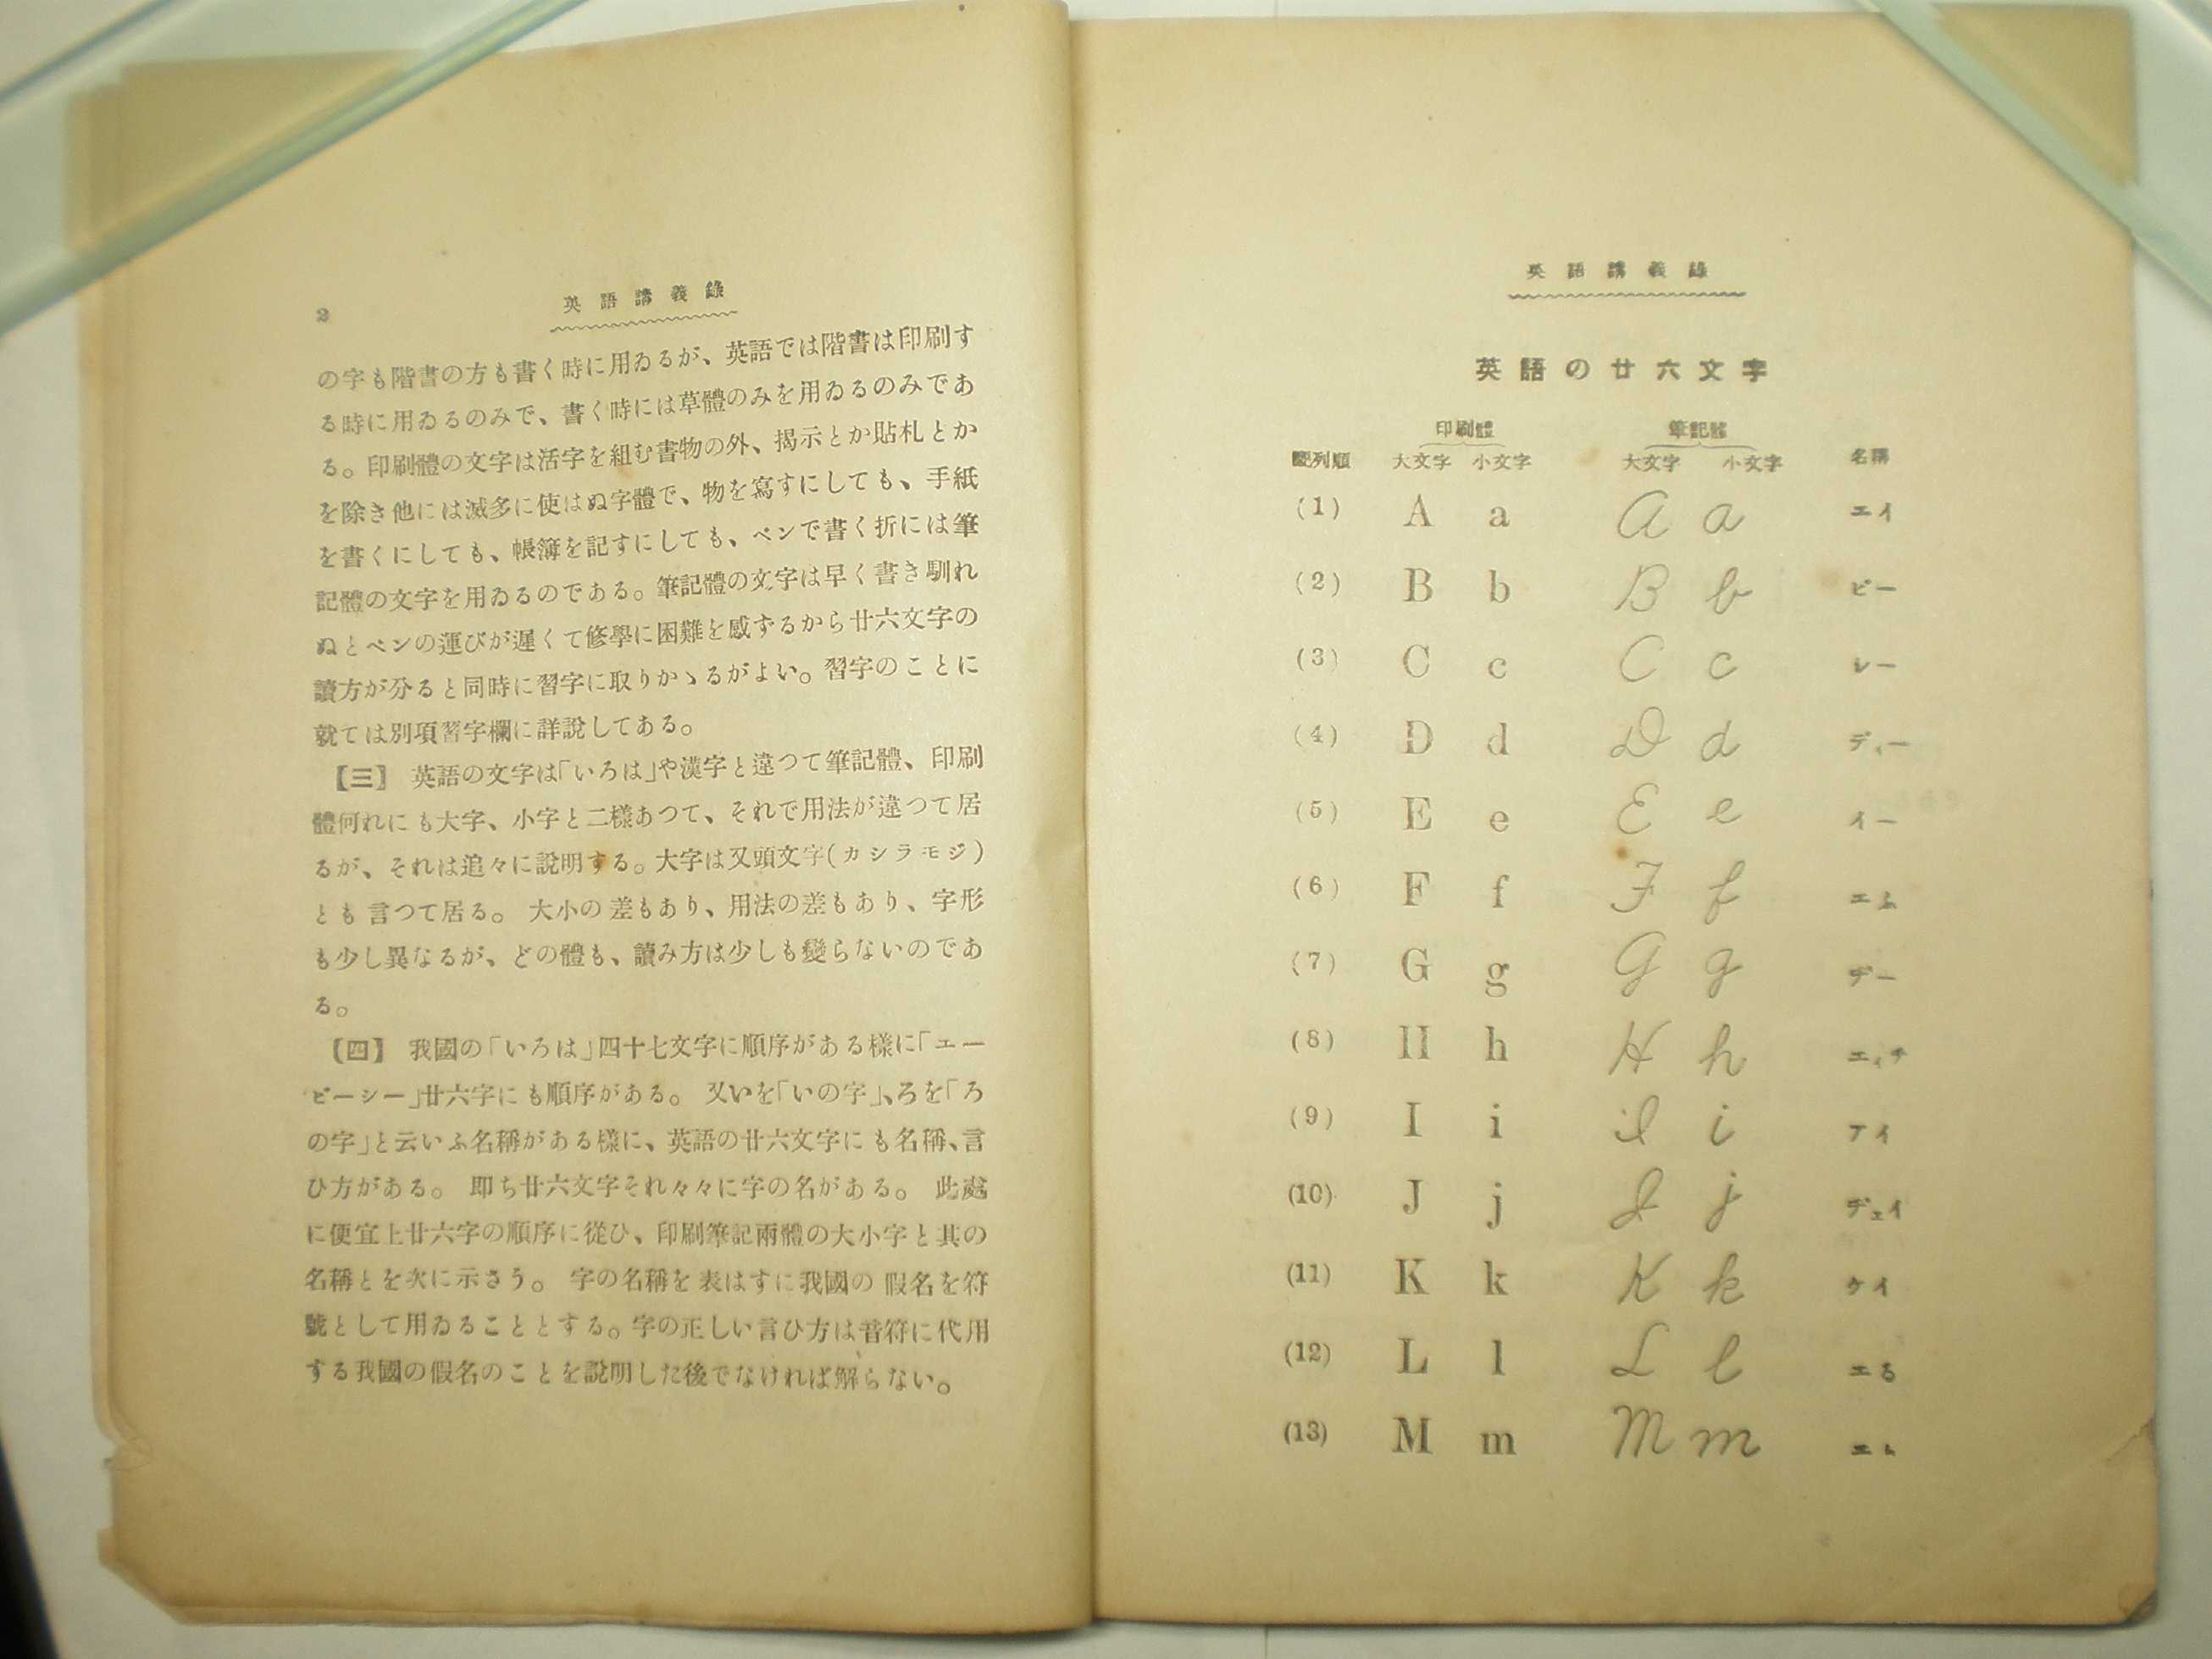 2
英語講義錄
の字も階書の方も書く時に用ゐるが、英語では階書は印刷す
る時に用ゐるのみで、書く時には草體のみを用ゐるのみであ
る。印刷體の文字は活字を組む書物の外、揭示とか貼札とか
を除き他には滅多に使はぬ字體で、物を寫すにしても、手紙
を書くにしても、帳簿を記すにしても、ペンで書く折には筆
記體の文字を用ゐるのである。筆記體の文字は早く書き馴れ
ぬとペンの運びが遲くて修學に困難を感ずるから廿六文字の
讀方が分ると同時に習字に取りかゝるがよい。習字のことに
就ては別項習字欄に詳說してある。
【三】 英語の文字は「いろは」や漢字と違つて筆記體、印刷
體何れにも大字、小字と二樣あつて、それで用法が違つて居
るが、それは追々に說明する。大字は又頭文字(カシラモジ)
とも言つて居る。 大小の差もあり、用法の差もあり、字形
も少し異なるが、どの體も、讀み方は少しも變らないのであ
る。
【四】 我國の「いろは」四十七文字に順序がある樣に「エー
ビーシー」廿六字にも順序がある。 又いを「いの字」、ろを「ろ
の字」と云いふ名稱がある樣に、英語の廿六文字にも名稱、言
ひ方がある。 卽ち廿六文字それ々々に字の名がある。 此處
に便宜上廿六字の順序に從ひ、印刷筆記兩體の大小字と其の
名稱とを次に示さう。 字の名稱を表はすに我國の假名を符
號として用ゐることとする。字の正しい言ひ方は音符に代用
する我國の假名のことを說明した後でなければ解らない。
英語講義錄
英語の廿六文字
印刷體 筆記體
配列順 大文字 小文字 大文字 小文字 名稱
(1) A a A a エイ
(2) B b B b ビー
(3) C c C c レー
(4) D d D d ディー
(5) E e E e イー
(6) F f F f エふ
(7) G g G g ヂー
(8) H h H h エィチ
(9) I i I i アイ
(10) J j J j ヂェイ
(11) K k K k ケイ
(12) L l L l エる
(13) M m M m エム